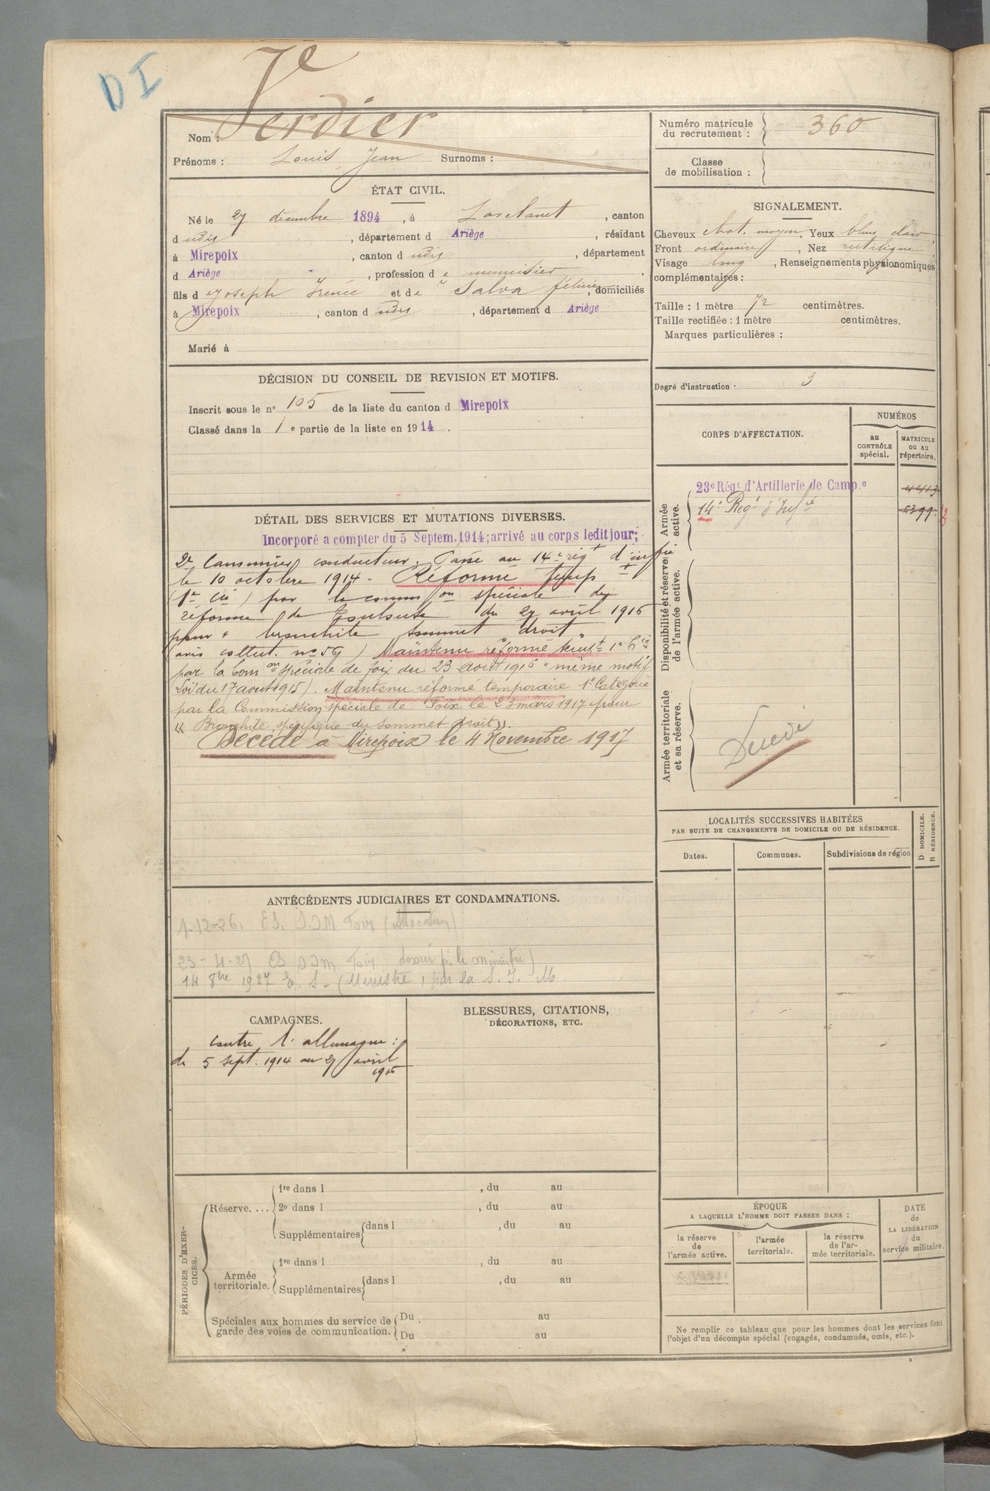 D I
7e
Nom : Verdier
Prénoms : Louis Jean Surnoms :
ÉTAT CIVIL.
Né le 27 décembre 1894, à Lavelanet, canton
d udis, département d Ariège, résidant
à Mirepoix, canton d udis, département
d Ariège, profession de menuisier,
fils de Joseph Irénée et de Salva, domiciliés
à Mirepoix, canton d udis, département d Ariège
Marié à
DÉCISION DU CONSEIL DE REVISION ET MOTIFS.
Inscrit sous le n° 105 de la liste du canton d Mirepoix
Classé dans la 1e partie de la liste en 1914.
DÉTAIL DES SERVICES ET MUTATIONS DIVERSES.
Incorporé a compter du 5 Septem. 1914; arrivé au corps ledit jour;
2e Canonnier conducteur. Passé au 14e régt d'inffie
le 10 octobre 1914 - Réformé temp
par la common spéciale de
réforme de Toulouse du 27 avril 1915
pour « bronchite sommet droit
Maintenu réformé tempre 1e Cie
par la Comon spéciale de Foix du 23 août 1916 « même motif
Loi du 17 août 1915). Maintenu réformé temporaire 1e Catégorie
par la Commission spéciale de Foix le 23 mars 1917 pour
« Bronchite spécifique du sommet droit ».
Décédé à Mirepoix le 4 Novembre 1917
ANTÉCÉDENTS JUDICIAIRES ET CONDAMNATIONS.
1-12-26. ES. Foix
23-4-27 Foix
14 8bre 1927
CAMPAGNES.
contre l'allemagne :
du 5 sept. 1914 au 27 avril
1915
BLESSURES, CITATIONS,
DÉCORATIONS, ETC.
PÉRIODES D'EXERCICES.
Réserve. ...
1re dans l , du au
2e dans l , du au
Supplémentaires dans l , du au
Armée territoriale.
1re dans l , du au
Supplémentaires dans l , du au
Spéciales aux hommes du service de
garde des voies de communication.
Du au
Du au
Numéro matricule
du recrutement : 360
Classe
de mobilisation :
SIGNALEMENT.
Cheveux chat. moyen, Yeux bleus clair
Front ordinaire, Nez rectiligne
Visage long, Renseignements physionomiques
complémentaires :
Taille : 1 mètre 72 centimètres.
Taille rectifiée : 1 mètre centimètres.
Marques particulières :
Degré d'instruction : 3
CORPS D'AFFECTATION.
NUMÉROS
au
CONTRÔLE
spécial.
MATRICULE
ou au
répertoire.
Armée
active.
23e Régt d'Artillerie de Campe
14e Régt d'Infie
Disponibilité et réserve
de l'armée active.
Armée territoriale
et sa réserve.
Décédé
LOCALITÉS SUCCESSIVES HABITÉES
PAR SUITE DE CHANGEMENTS DE DOMICILE OU DE RÉSIDENCE.
Dates.
Communes.
Subdivisions de région
D DOMICILE.
R RÉSIDENCE.
ÉPOQUE
A LAQUELLE L'HOMME DOIT PASSER DANS :
la réserve
de
l'armée active.
l'armée
territoriale.
la réserve
de l'ar-
mée territoriale.
DATE
de
LA LIBÉRATION
du
service militaire.
Ne remplir ce tableau que pour les hommes dont les services font
l'objet d'un décompte spécial (engagés, condamnés, omis, etc.).